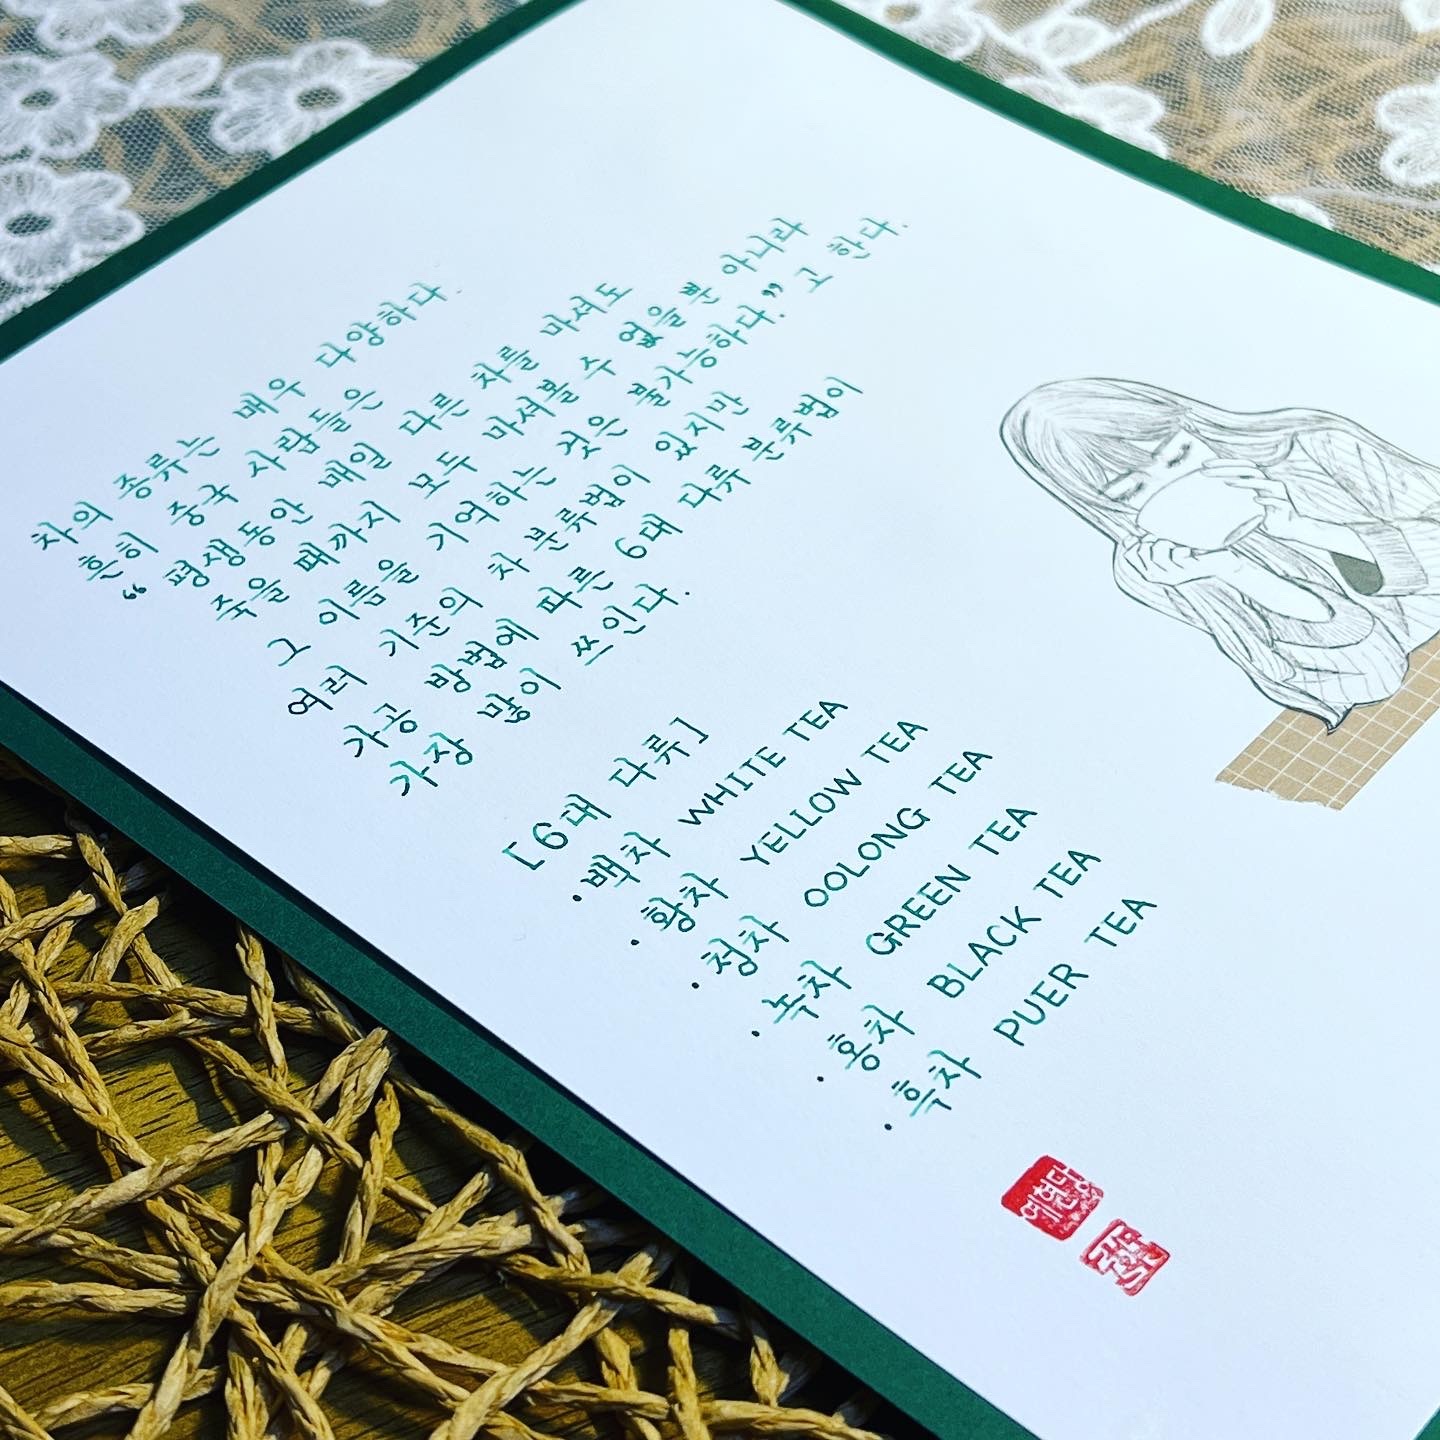 차의 종류는 매우 다양하다.
흔히 중국 사람들은
“평생동안 매일 다른 차를 마셔도
죽을 때까지 모두 마셔볼 수 없을뿐 아니라
그 이름을 기억하는 것은 불가능하다.”고 한다.
여러 기준의 차 분류법이 있지만
가공 방법에 따른 6대 다류 분류법이
가장 많이 쓰인다.
[6대 다류]
·백차 WHITE TEA
·황차 YELLOW TEA
·청차 OOLONG TEA
·녹차 GREEN TEA
·홍차 BLACK TEA
·흑차 PUER TEA
예현담